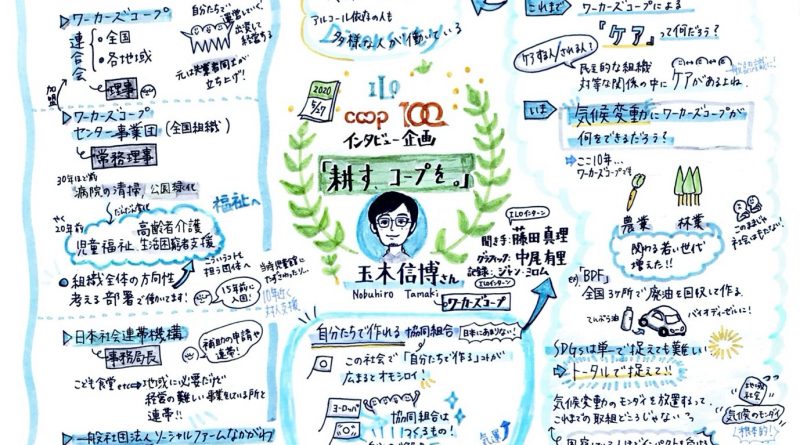 ▷ワーカーズコープ
連合会
・全国
・各地域
加盟
理事
自分たちで
運営していく
出資して
経営する
元は失業者同士が
立ち上げ!
▷ワーカーズコープ
センター事業団(全国組織)
常務理事
30年ほど前
病院の清掃,公園緑化
やく
20年前
高齢者介護
児童福祉,生活困窮者支援
福祉へ
こういうことも
担う団体へ
●組織全体の方向性
考える部署で働いてます!
15年前に
入団!
10年近く
対人支援
▷日本社会連帯機構
事務局長
補助の申請や
連帯!
こども食堂etc⇒地域に必要だけど
経営の難しい事業をしている所と
連帯!!
▷一般社団法人ソーシャルファームなががわ
アルコール依存の人も
多様な人が働いている
Diversity
2020
5/27
ILO
coop 100
インタビュー企画
「耕す、コープを。」
ILOインターン
聞き手:藤田真理
グラフィック:中尾有里
記録:ジャン・ミロム
ILOインターン
玉木信博さん
Nobuhiro Tamaki
ワーカーズコープ
自分たちで作れる協同組合
日本にあまりない!
この社会で「自分たちで作る」コトが
広まるとオモシロイ!
ヨーロッパ
協同組合は
つくるもの!
0%
気運
これまで
ワーカーズコープによる
『ケア』って何だろう?
ケアする人/される人?
民主的な組織
対等な関係の中に
ケアがあるよね
一般認識に!
いま
気候変動にワーカーズコープが
何をできるだろう?
⇒ここ10年…
ワーカーズコープでも
農業
林業
関わる若い世代
増えた!!
このままじゃ
社会はもたない!
ex)「BDF」
全国3ヶ所で廃油を回収して作る
てんぷら油
バイオディーゼルに!
SDGsは単一で捉えても難しい
→トータルで捉えて!!
気候変動のモンダイを放置するって、
これまでの取組どうするじゃない?
地域
社会
気候のモンダイ